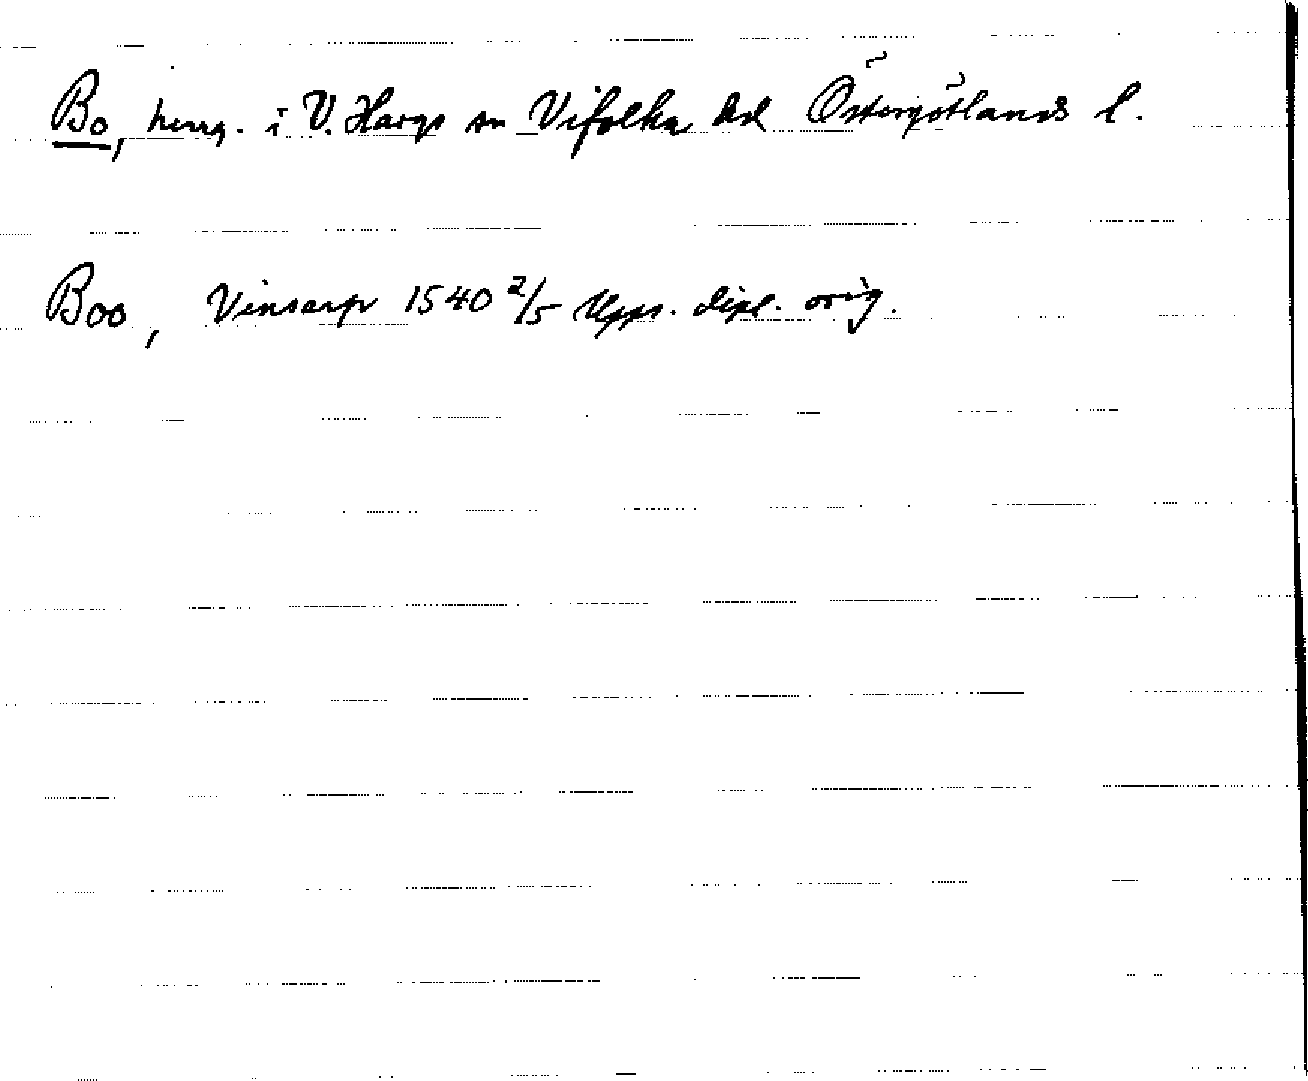 Bo, herrg. i V. Hargs sn Vifolka hd Östergötlands l.
Boo, Vinsarp 1540 2/5 Upps. dipl. orig.